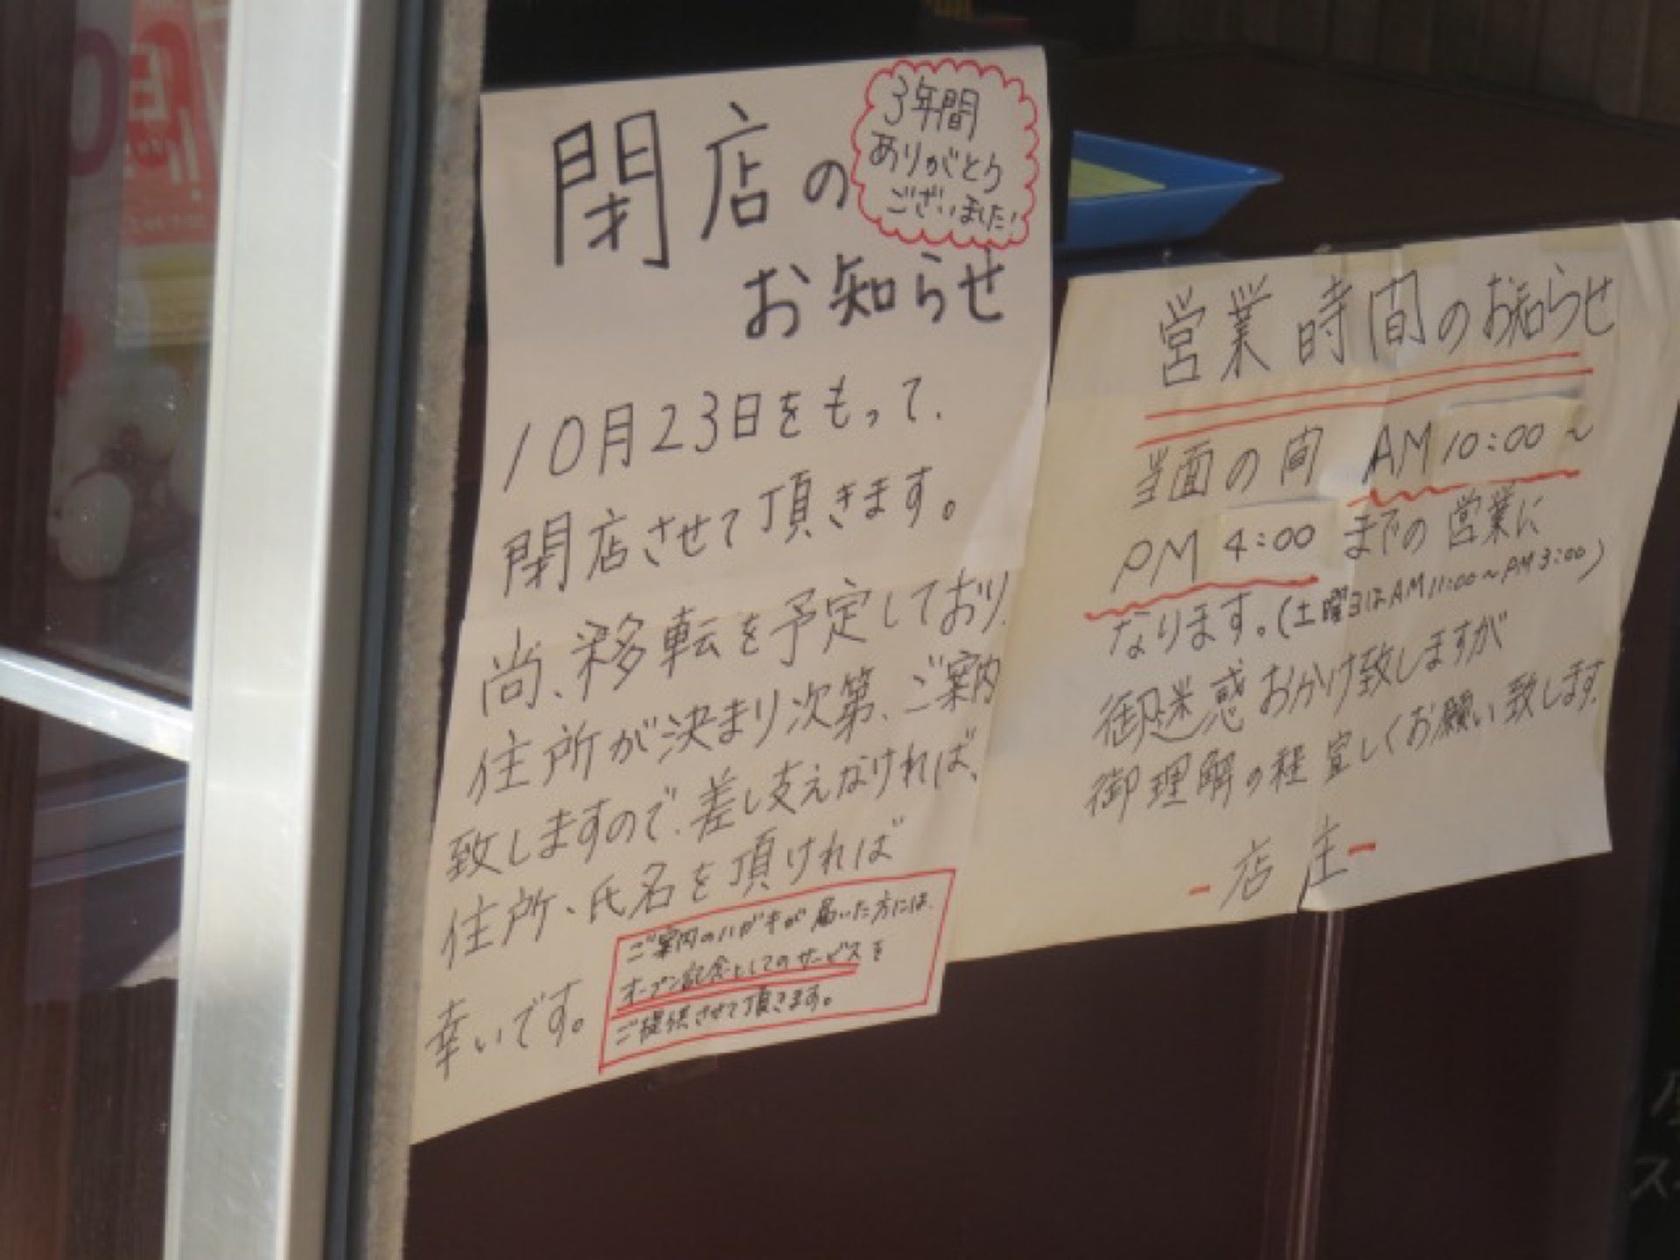 閉店の
お知らせ
3年間
ありがとう
ございました!
10月23日をもって、
閉店させて頂きます。
尚、移転を予定しており、
住所が決まり次第、ご案内
致しますので、差し支えなければ、
住所、氏名を頂ければ
幸いです。
ご案内のハガキが届いた方には、
オープン記念としてのサービスを
ご提供させて頂きます。
営業時間のお知らせ
当面の間 AM10:00〜
PM 4:00 までの営業に
なります。(土曜日はAM11:00〜PM3:00)
御迷惑おかけ致しますが
御理解の程宜しくお願い致します。
-店主-